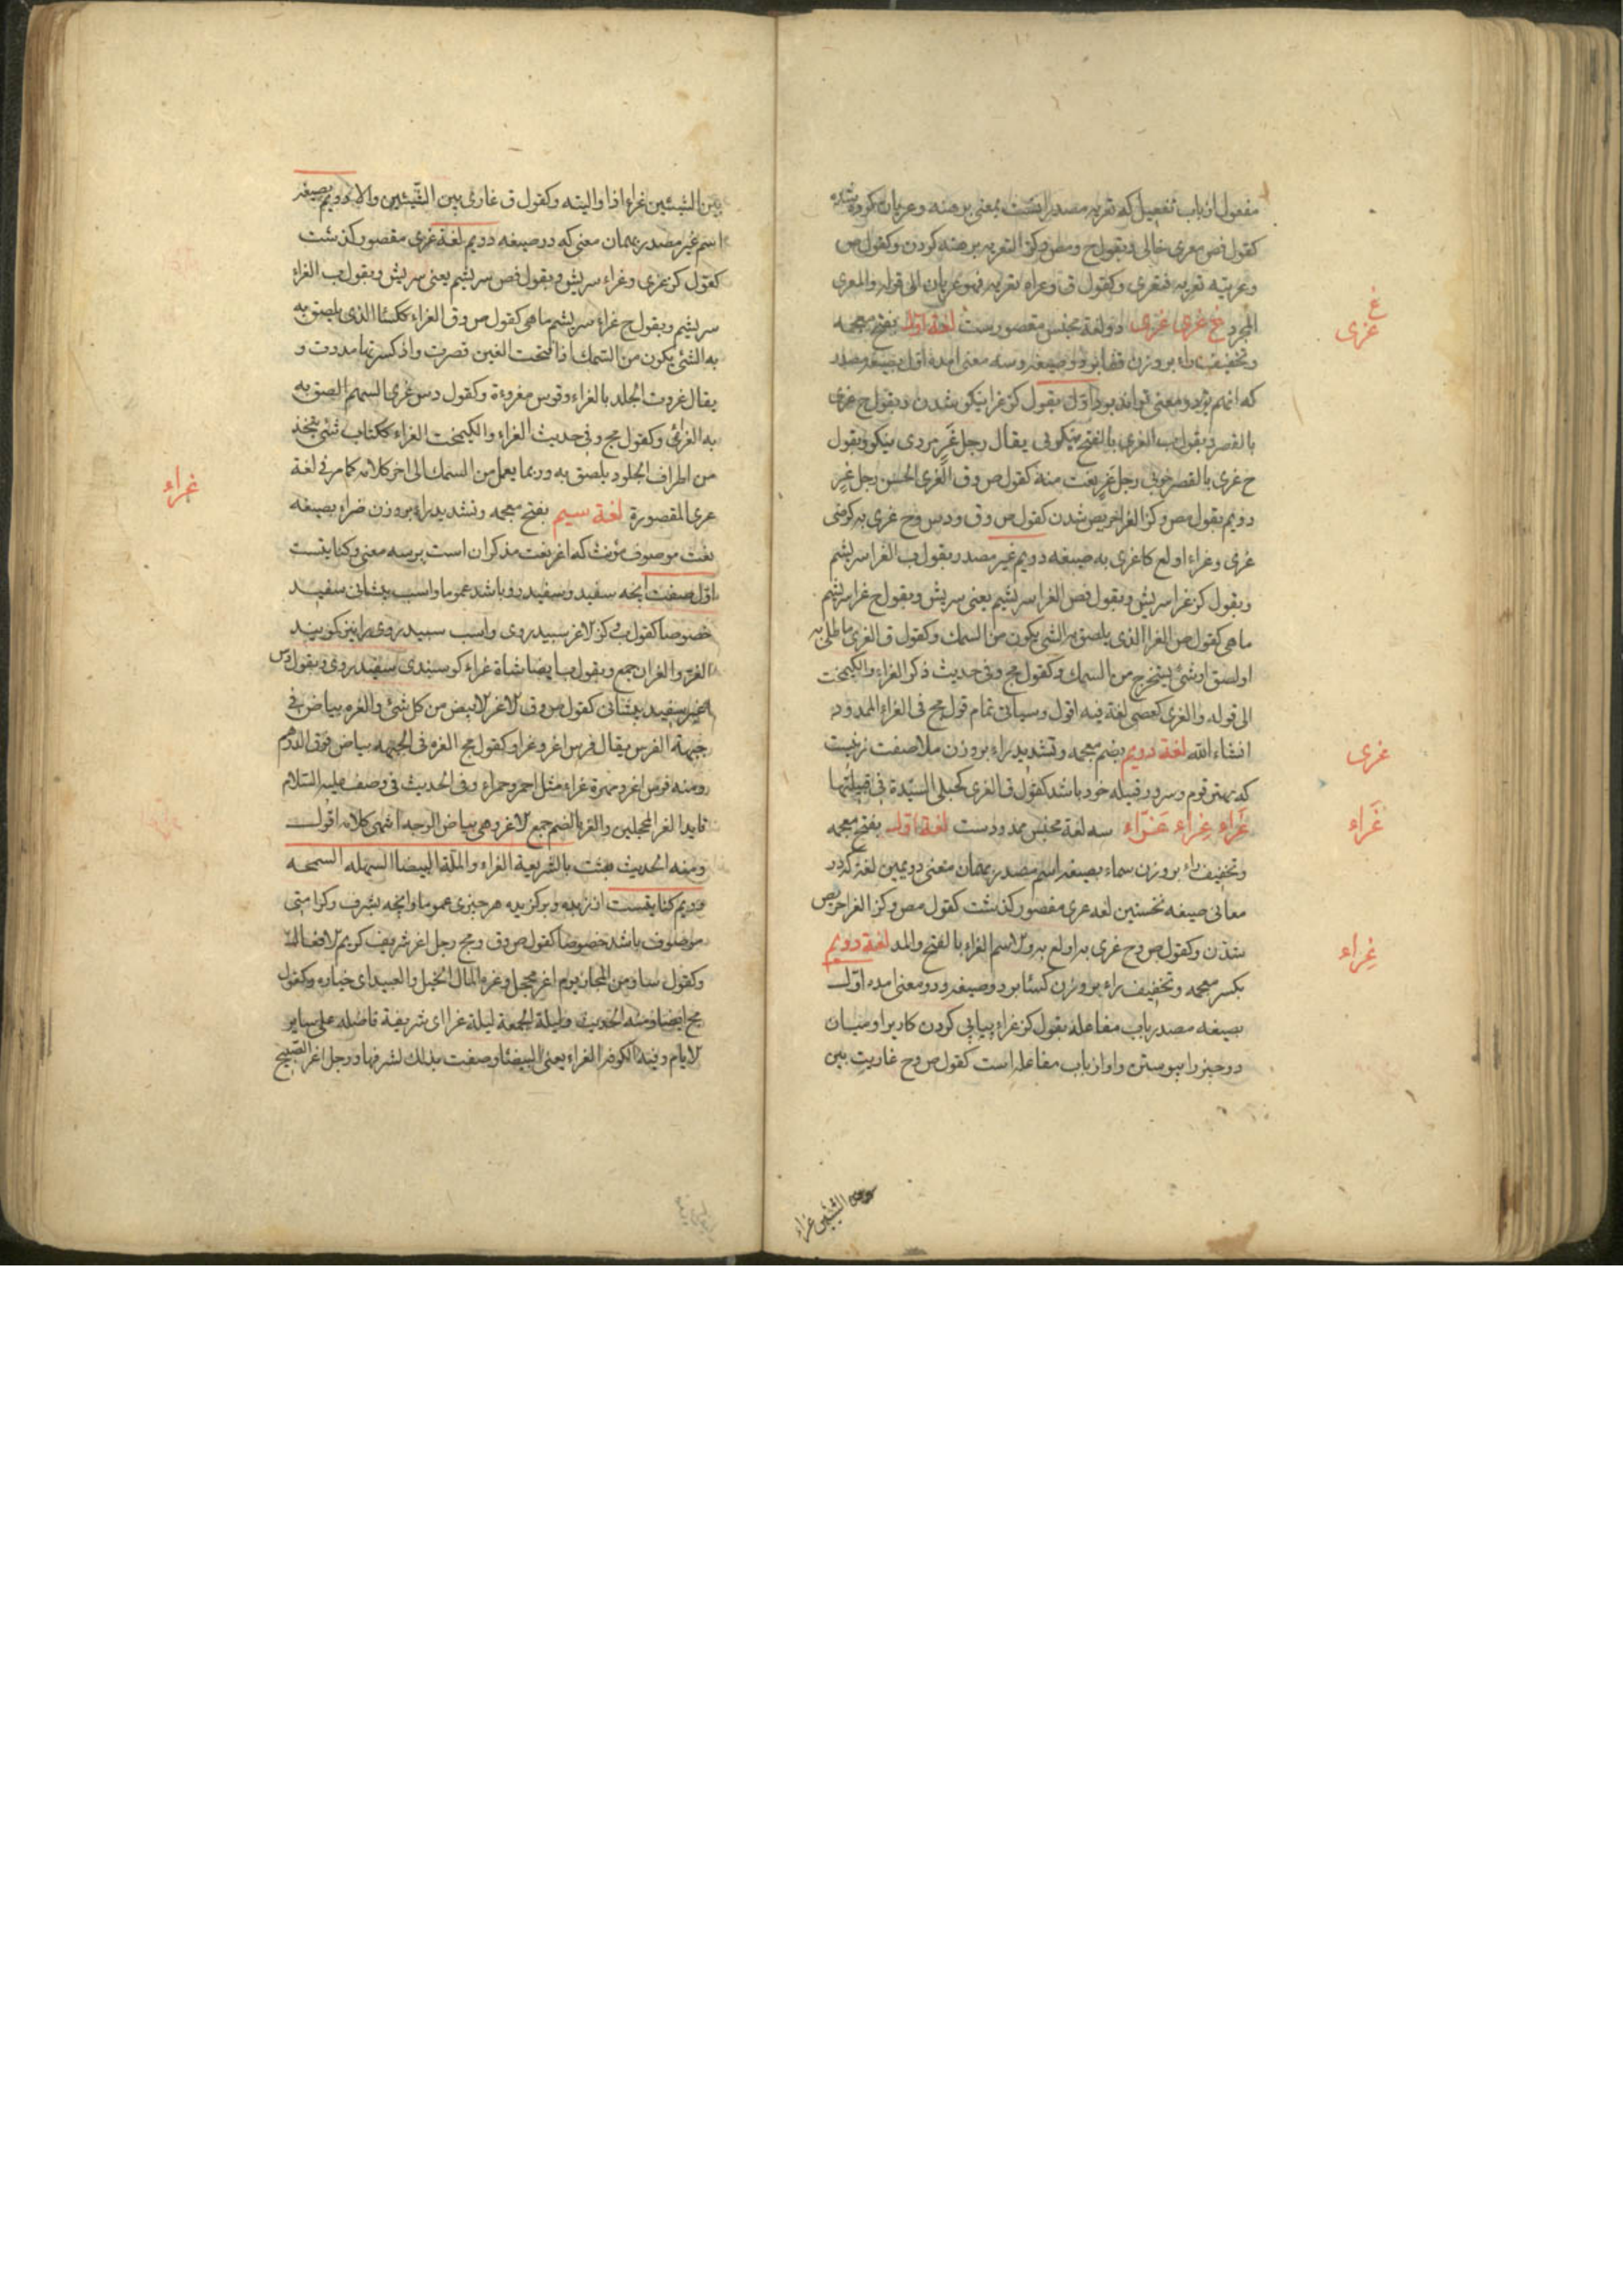 مفعول از باب تفعیل که تعریه مصدر است بمعنی برهنه و عریان کرده شده
کقول فص معری خالی و بقول ح و مص و کز التعریه برهنه کردن و کقول ص
وعریته تعریه فتعری و کقول ق وعراه تعریه فهو عریان الی قوله والمعری
المجرد غ غری غزی دو لغة مجنس مقصورست لغة اول بفتح معجمه
وتخفیف راء بروزن قفا بر دو صیغه وسه معنی امده اول بصیغه مصدر
که انهم بر دو معنی تواند بود اول بقول کز غرا نیکو شدن و بقول ح غری
بالقصر و بقول ب الغری بالفتح نیکویی یقال رجل غر مردی نیکو و بقول
ح غری بالقصر خوبی رجل غر نعت منه کقول ص و ق الغری الحسن رجل غر
دویم بقول مص و کز الغرا حریص شدن کقول ص و ق و دس و ح غری به کرضی
غری وغراء اولع کاغری به صیغه دویم غیر مصدر بقول ب الغرا سریشم
وبقول کز غرا سریش وبقول فص الغرا سریشیم یعنی سریش وبقول ح غرا سریشم
ماهی کقول ص الغرا الذی یلصق به الشی یکون من السمک وکقول ق الغری ما طلی به
او لصق او شئ یستخرج من السمک وکقول مج وفی حدیث ذکر الغراء والکیمخت
الی قوله والغری کعصی لغة فیه اقول وسیاتی تمام قول مج فی الغراء الممدود
انشاء الله لغة دویم بضم معجمه وتشدید راء بروزن ملا صفت زنیست
که بهتر قوم وسرور قبیله خود باشد کقول ق الغری کحبلی السیدة فی قبیلتها
غراء غراء غراء سه لغة مجنس ممدودست لغة اول بفتح معجمه
وتخفیف راء بروزن سماء بصیغه اسم مصدر بهمان معنی دویمین لغة که در
معانی صیغه نخستین لغه غری مقصور کذشت کقول مص وکز الغرا حریص
شدن وکقول ص و ح غری به اولع به والاسم الغراء بالفتح والمد لغة دویم
بکسر معجمه وتخفیف راء بروزن کسا بر دو صیغه ودو معنی امده اول
بصیغه مصدر باب مفاعله بقول کز غراء پیاپی کردن کار یرا ومیان
دو چیز را پیوستن واو از باب مفاعله است کقول ص و ح غاریت بین
بین الشیئین غراء
غ
غری
غری
غراء
غراء
بین الشیئین غراء اذا والیته وکقول ق غاری بین الشیئین والاه دویم بصیغه
اسم غیر مصدر بهمان معنی که در صیغه دویم لغة غری مقصور کذشت
کقول کز غری وغراء سریش وبقول فص سریشم یعنی سریش وبقول ب الغراء
سریشم وبقول ح غراء سریشم ماهی کقول ص و ق الغراء ککسا الذی یلصق به
به الشئ یکون من السمک اذا فتحت الغین قصرت واذ کسرتها مددت و
یقال غروت الجلد بالغراء وقوس مغروة وکقول دس غری السهم الصق به
به الغرائ وکقول مج وفی حدیث الغراء والکیمخت الغراء ککتاب شئ یتخذ
من اطراف الجلود یلصق به وربما یعمل من السمک الی اخر کلامه کما مر فی لغة
غری المقصورة لغة سیم بفتح معجمه وتشدید راء بروزن ضراء بصیغه
نعت موصوف مؤنث که اغر نعت مذکر ان است بر سه معنی وکنایتست
اول صفت انچه سفید وسفید رو باشد عموما واسب پیشانی سفید
خصوصا کقول ب و کز الاغر سپید روی واسب سپید روی را نیز کویند
الغر والغران جمع وبقول ب ایضا شاة غراء کوسپندی سفید روی وبقول دس
اغر سفید پیشانی کقول ص و ق الاغر الابیض من کل شئ والغره بیاض فی
جبهة الفرس یقال فرس اغر وغراء وکقول مج الغره فی الجبهه بیاض فوق الدرهم
ومنه فرس اغر ومهرة غراء مثل احمر وحمراء وفی الحدیث فی وصف علیه السلام
قاید الغر المحجلین والغر بالضم جمع الاغر وهی بیاض الوجه انتهی کلامه اقول
ومنه الحدیث بعثت بالشریعة الغراء والملة البیضا السهله السمحه
ودویم کنایتست از زبده وبرکزیده هر چیزی عموما وانچه بشرف وکرامتی
موصوف باشد خصوصا کقول ص و ق و مج رجل اغر شریف کریم الافعال
وکقول سا ومن المجاز یوم اغر محجل وغره المال الخیل والعبید ای خیاره وکقول
مج ایضا ومنه الحدیث ولیلة الجمعة لیلة غرا ای شریفة فاضله علی سایر
الایام وفیه الکوفر الغراء یعنی البیضا وصفت بذلک لشرفها ورجل اغر الصبیح
غراء